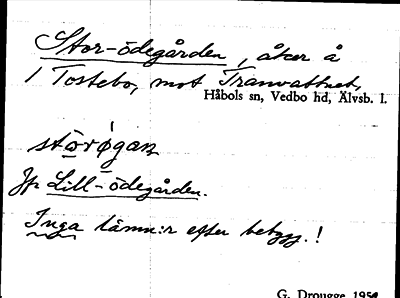 Stor-ödegården, åker å
1 Tostebo, mot Tranvattnet,
Håbols sn, Vedbo hd, Älvsb. l.
Jfr Lill-ödegården.
Inga lämn:r efter bebygg.!
G. Drougge 195